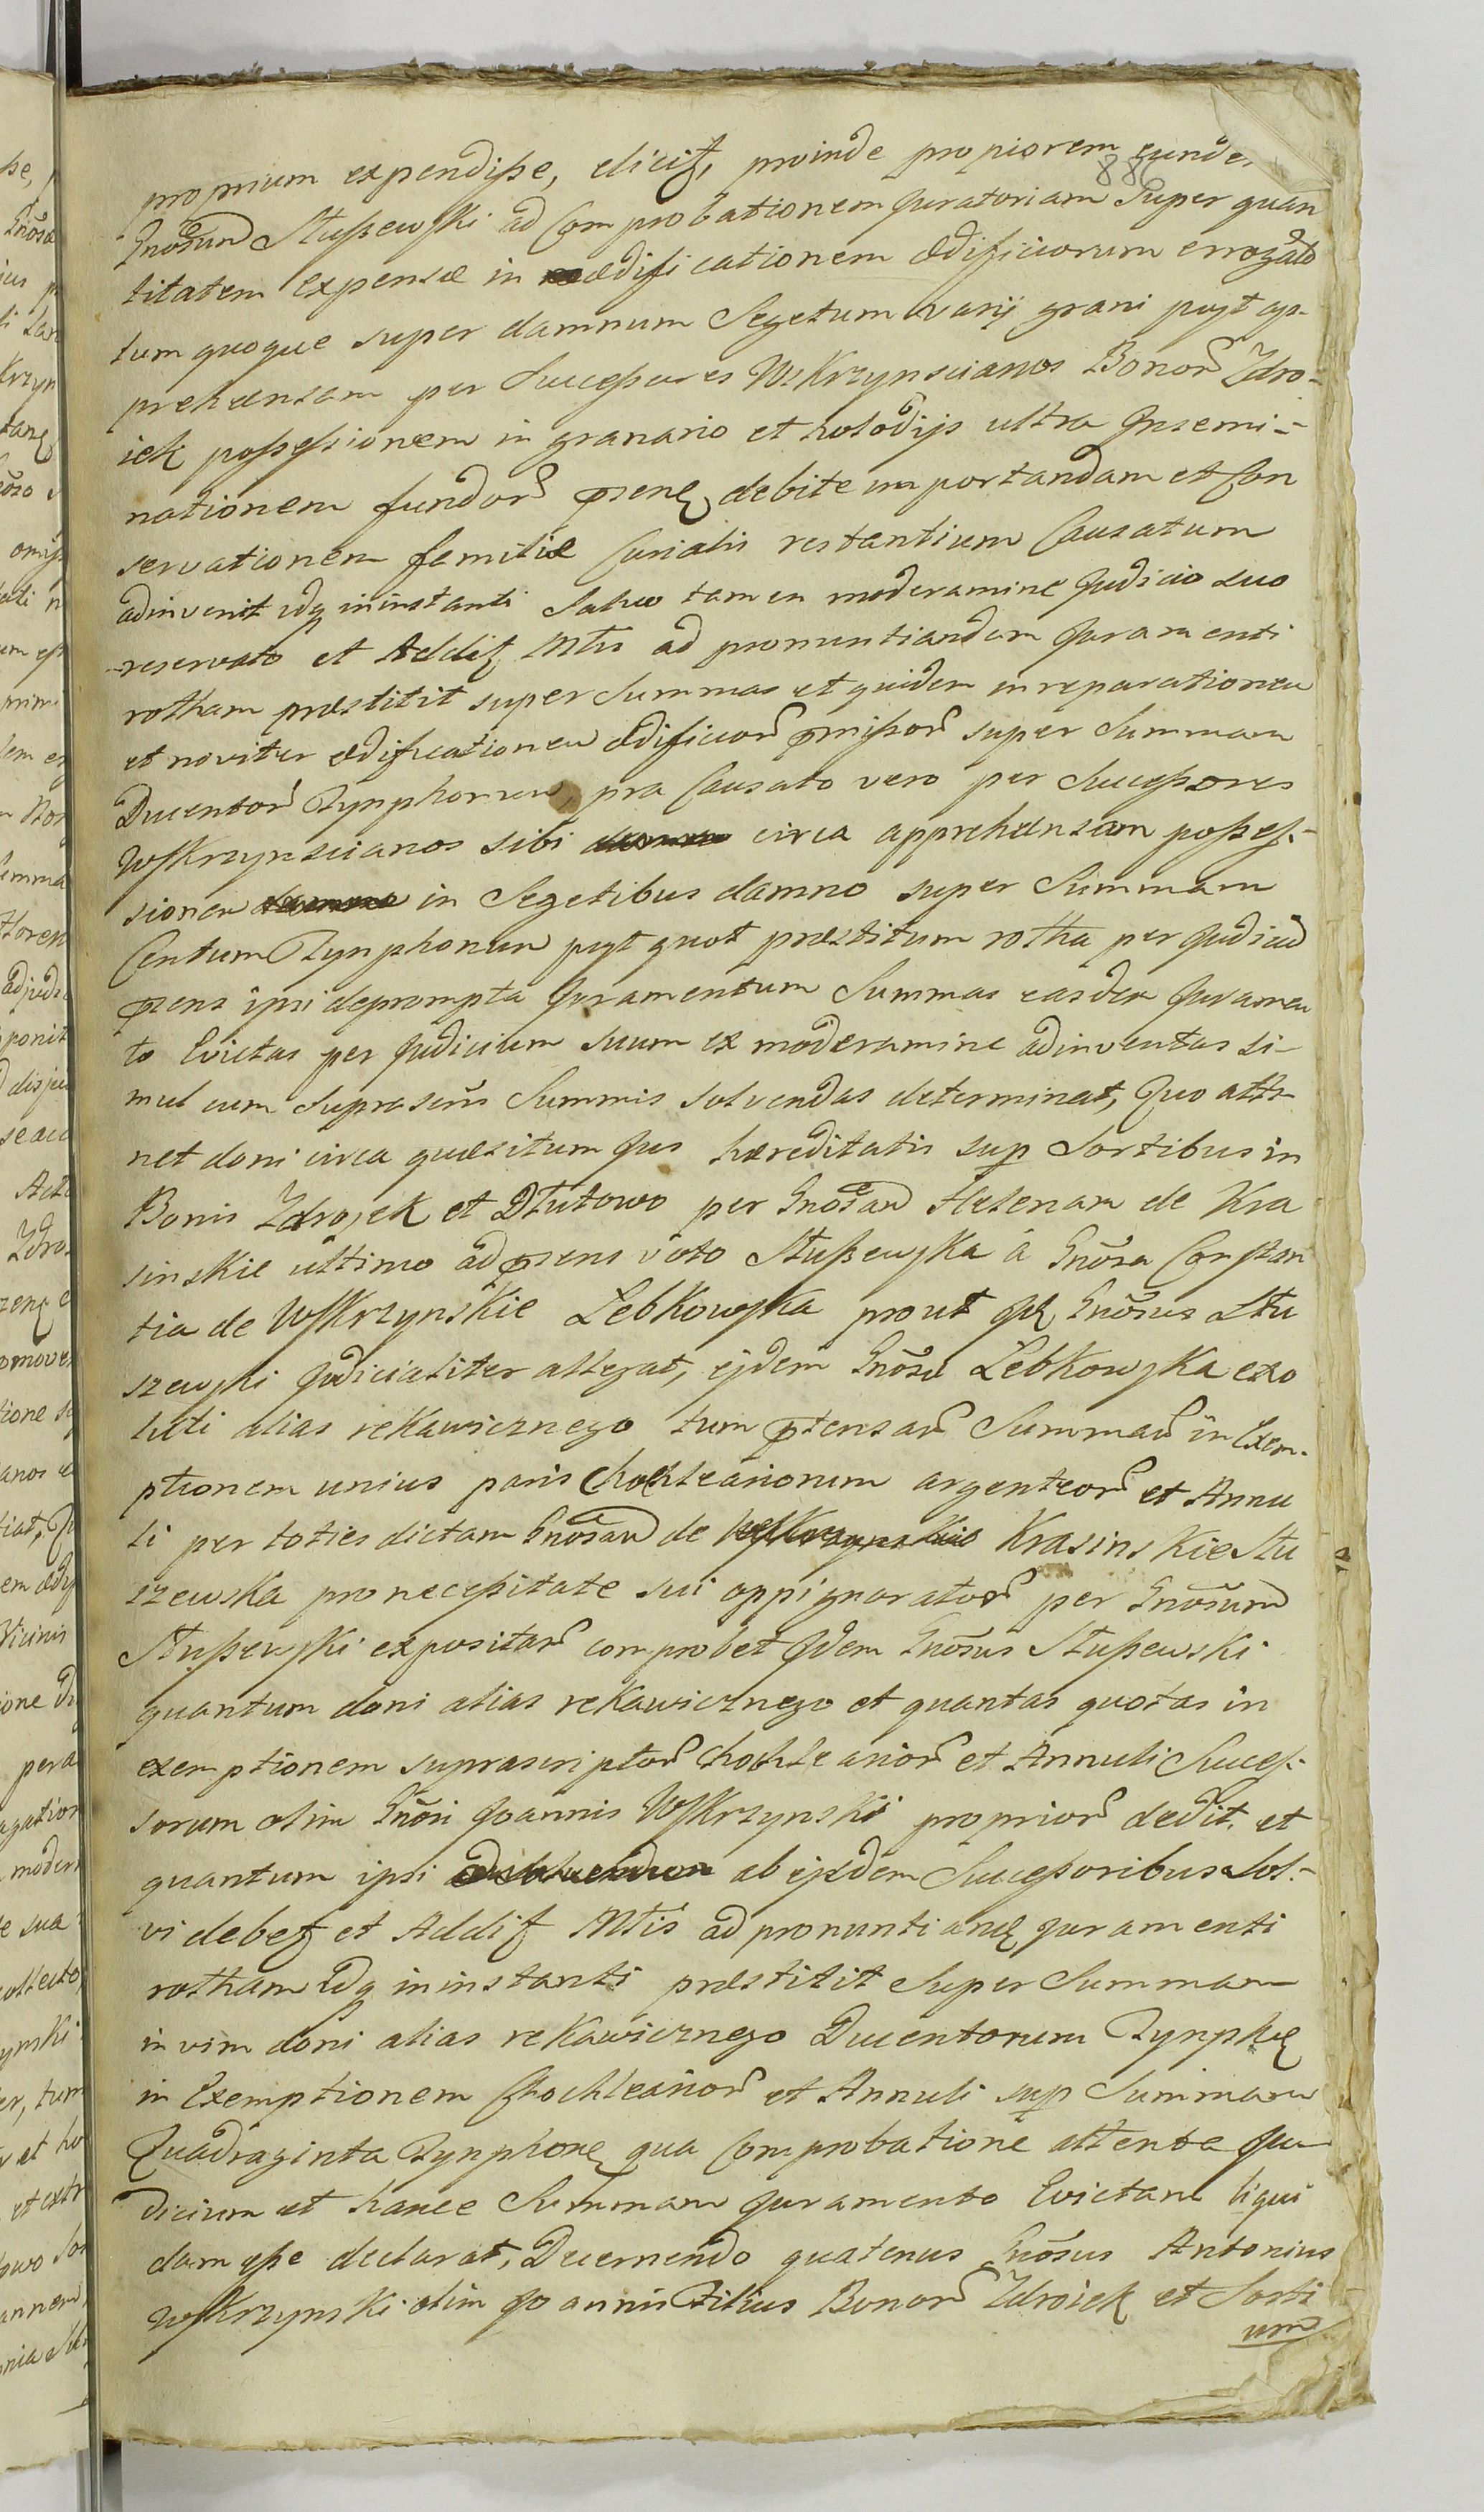 886
proprium expendisse, elicit, proinde propiorem eunde
Gnosum Stuszewski ad Comprobationem Juratoriam Super quan
titatem expensæ in ædificationem ædificiorum errogato
tum quoque super damnum Segetum varij grani post ap-
prehensam per Successores Wskrzynscianos Bonor Zdro-
iek possessionem in granario et holodijs ultra Insemi-
nationem fundor præsent debite importandam et Con
servationem familiæ Curialis restantium Causatum
adinvenit idq ininstanti Salvo tamen moderamine Judicio suo
reservato et Addit Mtis ad pronuntiandam Juramenti
rotham præstitit super Summas et quidem in reparationem
et noviter ædificationem ædificior præmissor super Summam
Ducentor Tynphonum, pra Causato vero per Successores
Wskrzynscianos sibi circa apprehensam posses-
sionem in Segetibus damno super Summam
Centum Tynphonum post quot præstitum rotha per Judiciu
præsens ipsi deprompta Juramentum Summas easdem Juramen
to Evictas per Judicium suum ex moderamine adinventas si-
mul cum suprascriis Summis solvendas determinat, Quo atti-
net doni circa quæsitum Jus hæreditatis sup Sortibus in
Bonis Zdrojek et Dłutowo per Gnosam Helenam de Kra
sinskie ultimo ad præsens voto Stuszewska à Gnosa Constan
tia de Wskrzynskie Lebkowska prout Idem Gnosus Stu
szewski Judicialiter allegat, ejdem Gnosæ Lebkowska exo
luti alias rekawicznego tum prætensar Summar in Exem-
ptionem unius paris Chochlearionum argenteor et Annu
li per toties dictam Gnosam de Krasinskie Stu
szewska pro necessitate sui oppignorator per Gnosum
Stuszewski expositar comprobet Idem Gnosus Stuszewski
quantum doni alias rekawicznego et quantas quotas in
exemptionem suprascriptor Chochlearior et Annuli Succes-
sorum olim Gnosi Joannis Wskrzynski proprior dedit, et
quantum ipsi ab ijsdem Successoribus Sol-
vi debet et Addit Mtis ad pronuntiand juramenti
rotham idq ininstanti præstitit Super Summam
in vim doni alias rekawicznego Ducentorum Tynph
in Exemptionem Chochlearior et Annuli sup Summam
Quadraginta Tynphon qua Comprobatione attenta Ju
dicium et hance Summam juramento Evictam liqui
dam esse declarat, Decernendo quatenus Gnosus Antonius
Wskrzynski olim Joannis Filius Bonor Zdroiek et Sorti
um